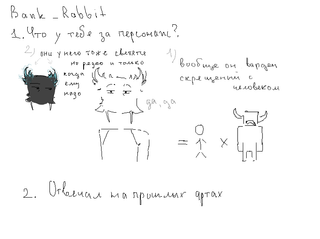 Bank_Rabbit
1. Что у тебя за персонаж?
2) они у него тоже светятся
но редко и только
когда
ему
надо
1)
вообще он варден
скрещений с
человеком
да, да
= x
2. Отвечал на прошлых артах